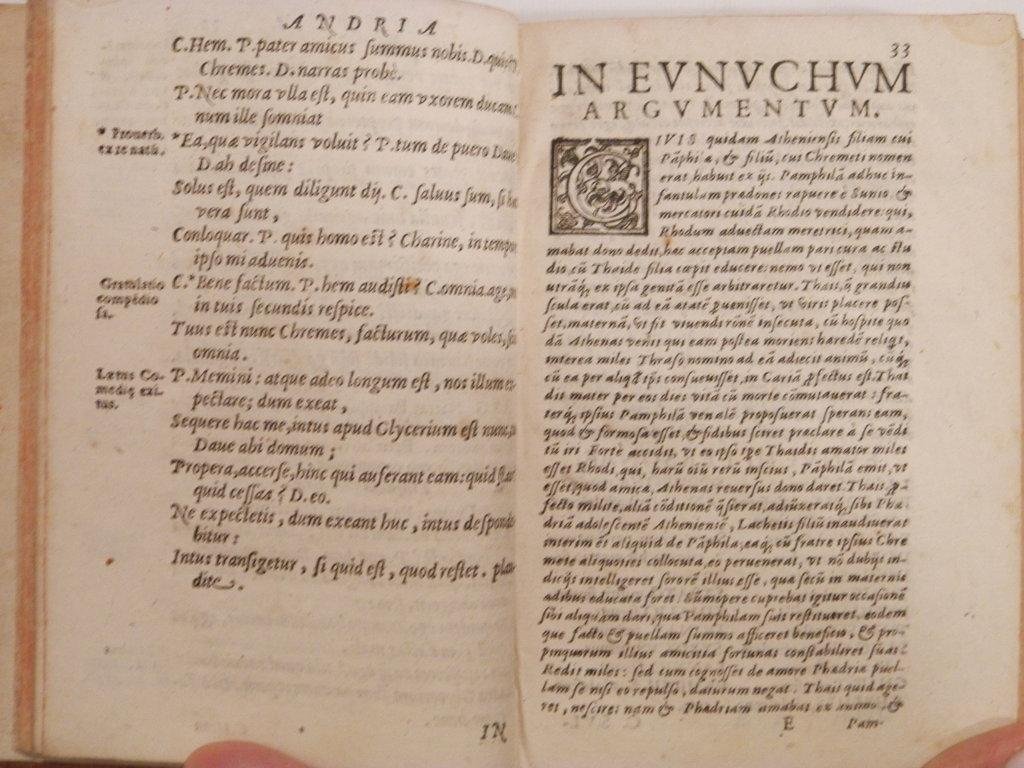 ANDRIA
C.Hem. P.pater amicus summus nobis. D.
Chremes. D.narras probè.
P.Nec mora vlla est, quin eam vxorem ducam:
num ille somniat
* Prouerb.
ex re nata.
*Ea,quæ vigilans voluit? P.tum de puero Daue
D.ah desine:
Solus est, quem diligunt dij. C. saluus sum, si hæc
vera sunt,
Conloquar. P. quis homo est? Charine, in tempore
ipso mi aduenis.
Gratulatio
compēdio
sa.
C.*Bene factum. P.hem audisti? C.omnia.age,
in tuis secundis respice.
Tuus est nunc Chremes, facturum, quæ voles,
omnia.
Lætus Co-
mediæ exi-
tus.
P.Memini: atque adeo longum est, nos illum ex
pectare; dum exeat,
Sequere hac me,intus apud Glycerium est nunc,
Daue abi domum;
Propera,accerse,hinc qui auferant eam:quid stas
quid cessas? D.eo.
Ne expectetis, dum exeant huc, intus desponde
bitur:
Intus transigetur, si quid est, quod restet. plau
dite.
IN
33
IN EVNVCHVM
ARGVMENTVM.
CIVIS quidam Atheniensis filiam cui
Pāphila, & filiū, cui Chremeti nomen
erat, habuit ex ijs. Pamphilā adhuc in-
fantulam prædones rapuere è Sunio, &
mercatori cuidā Rhodio vendidere: qui,
Rhodum aduectam meretrici, quam a-
mabat dono dedit,hæc acceptam puellam pari cura ac stu
dio cū Thaide filia cœpit educere: nemo vt esset, qui non
vtrāq; ex ipsa genitā esse arbitraretur. Thais,q̄ grandiu
scula erat, cū ad eā ætatē puenisset, vt viris placere pos-
set,maternā, vt fit viuendi rōnē insecuta, cū hospite quo
dā Athenas venit qui eam postea moriens hæredē reliqt,
interea miles Thraso nomine ad eā adiecit animū, cūq;
cū ea per aliqđ tp̄s consueuisset,in Cariā ꝓfectus est.Thai
dis mater per eos dies vitā cū morte cōmutauerat: fra-
terq́; ipsius Pamphilā venalē proposuerat sperans eam,
quod & formosa esset, & fidibus sciret præclare à se vēdi
tū iri Forte accidit, vt eo ipso tp̄e Thaidis amator miles
esset Rhodi,qui, harū oīu rerū inscius, Pāphilā emit, vt
esset,quod amicæ, Athenas reuersus dono daret. Thais ꝓ-
fecto milite,aliā cōditionē q̄sierat,adiūxeratq́; sibi Phæ
driā adolescentē Atheniensē, Lachetis filiū inaudiuerat
interim et aliquid de Pāphila,eaq́; cū fratre ipsius Chre
mete aliquoties collocuta,eo peruenerat, vt nō dubijs in-
dicijs intelligeret sororē illius esse, quæ secū in maternis
ædibus educata foret. Sūmopere cupiebat igitur occasionē
sibi aliquam dari,qua Pamphilam suis restitueret. eodem
que facto & puellam summo afficeret beneficio, & pro-
pinquorum illius amicitia fortunas constabiliret suas.
Redit miles: sed cum cognosset de amore Phædriæ puel-
lam se nisi eo repulso, daturum negat. Thais quid age-
ret, nescire: nam & Phædriam amabat ex animo. &
E
Pam-